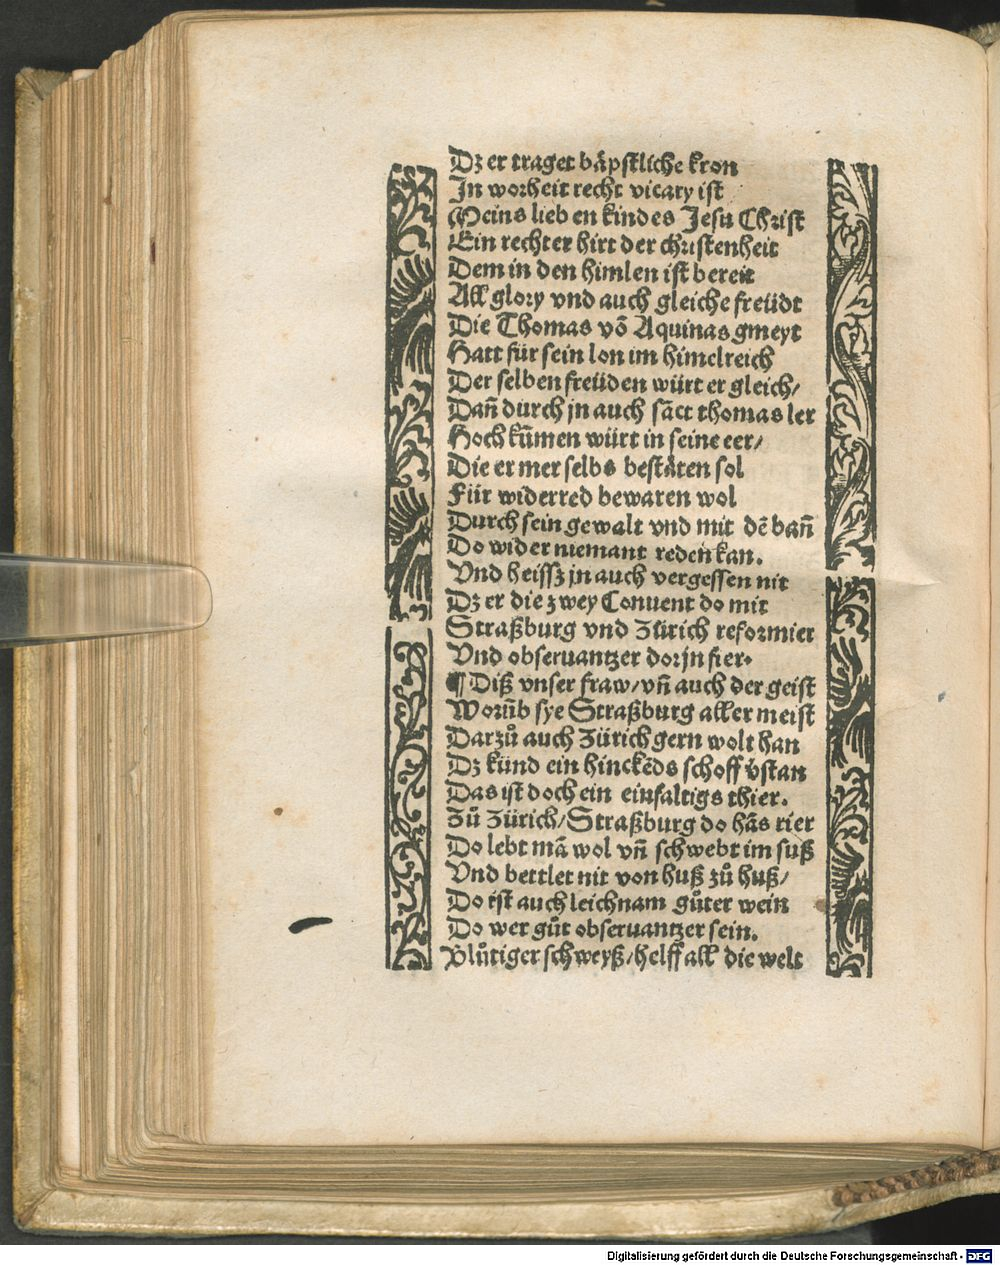 Dz er traget bäpstliche kron
In worheit recht vicary ist
Meins lieb en kindes Jesu Christ
Ein rechter hirt der christenheit
Dem in den himlen ist bereit
All glory vnd auch gleiche freüdt
Die Thomas võ Aquinas gmeyt
Hatt für sein lon im himelreich
Der selben freüden würt er gleich/
Dañ durch jn auch sãct thomas ler
Hoch kũmen würt in seine eer/
Die er mer selbs bestäten sol
Für widerred bewaren wol
Durch sein gewalt vnd mit dẽ bañ
Do wider niemant reden kan.
Vnd heissz jn auch vergessen nit
Dz er die zwey Conuent do mit
Straßburg vnd Zürich reformier
Vnd obseruantzer dorjn fier.
¶ Diß vnser fraw/vñ auch der geist
Worũb sye Straßburg aller meist
Darzů auch Zürich gern wolt han
Dz künd ein hinckẽds schoff v̈stan
Das ist doch ein einfaltigs thier.
Zů Zürich/Straßburg do hãs rier
Do lebt mã wol vñ schwebt im suß
Vnd bettlet nit von huß zů huß/
Do ist auch leichnam gůter wein
Do wer gůt obseruantzer sein.
Blůtiger schweyß/helff all die welt
Digitalisierung gefördert durch die Deutsche Forschungsgemeinschaft - DFG